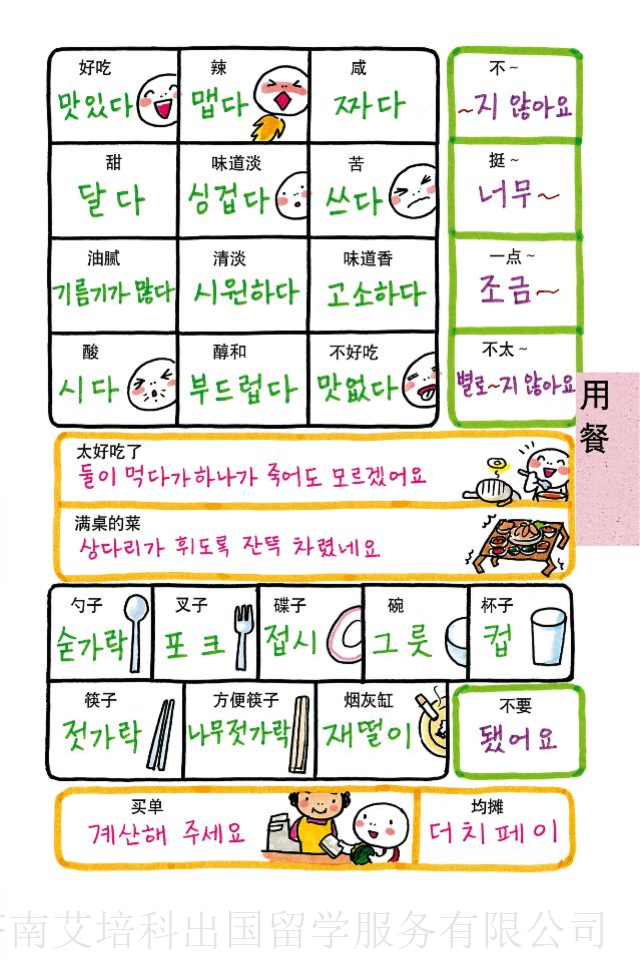 好吃
맛있다
辣
맵다
咸
짜다
不~
~지 않아요
甜
달다
味道淡
싱겁다
苦
쓰다
挺~
너무~
油腻
기름기가 많다
清淡
시원하다
味道香
고소하다
一点~
조금~
酸
시다
醇和
부드럽다
不好吃
맛없다
不太~
별로~지 않아요
用餐
太好吃了
둘이 먹다가 하나가 죽어도 모르겠어요
满桌的菜
상다리가 휘도록 잔뜩 차렸네요
勺子
숟가락
叉子
포크
碟子
접시
碗
그릇
杯子
컵
筷子
젓가락
方便筷子
나무젓가락
烟灰缸
재떨이
不要
됐어요
买单
계산해 주세요
均摊
더치페이
南艾培科出国留学服务有限公司